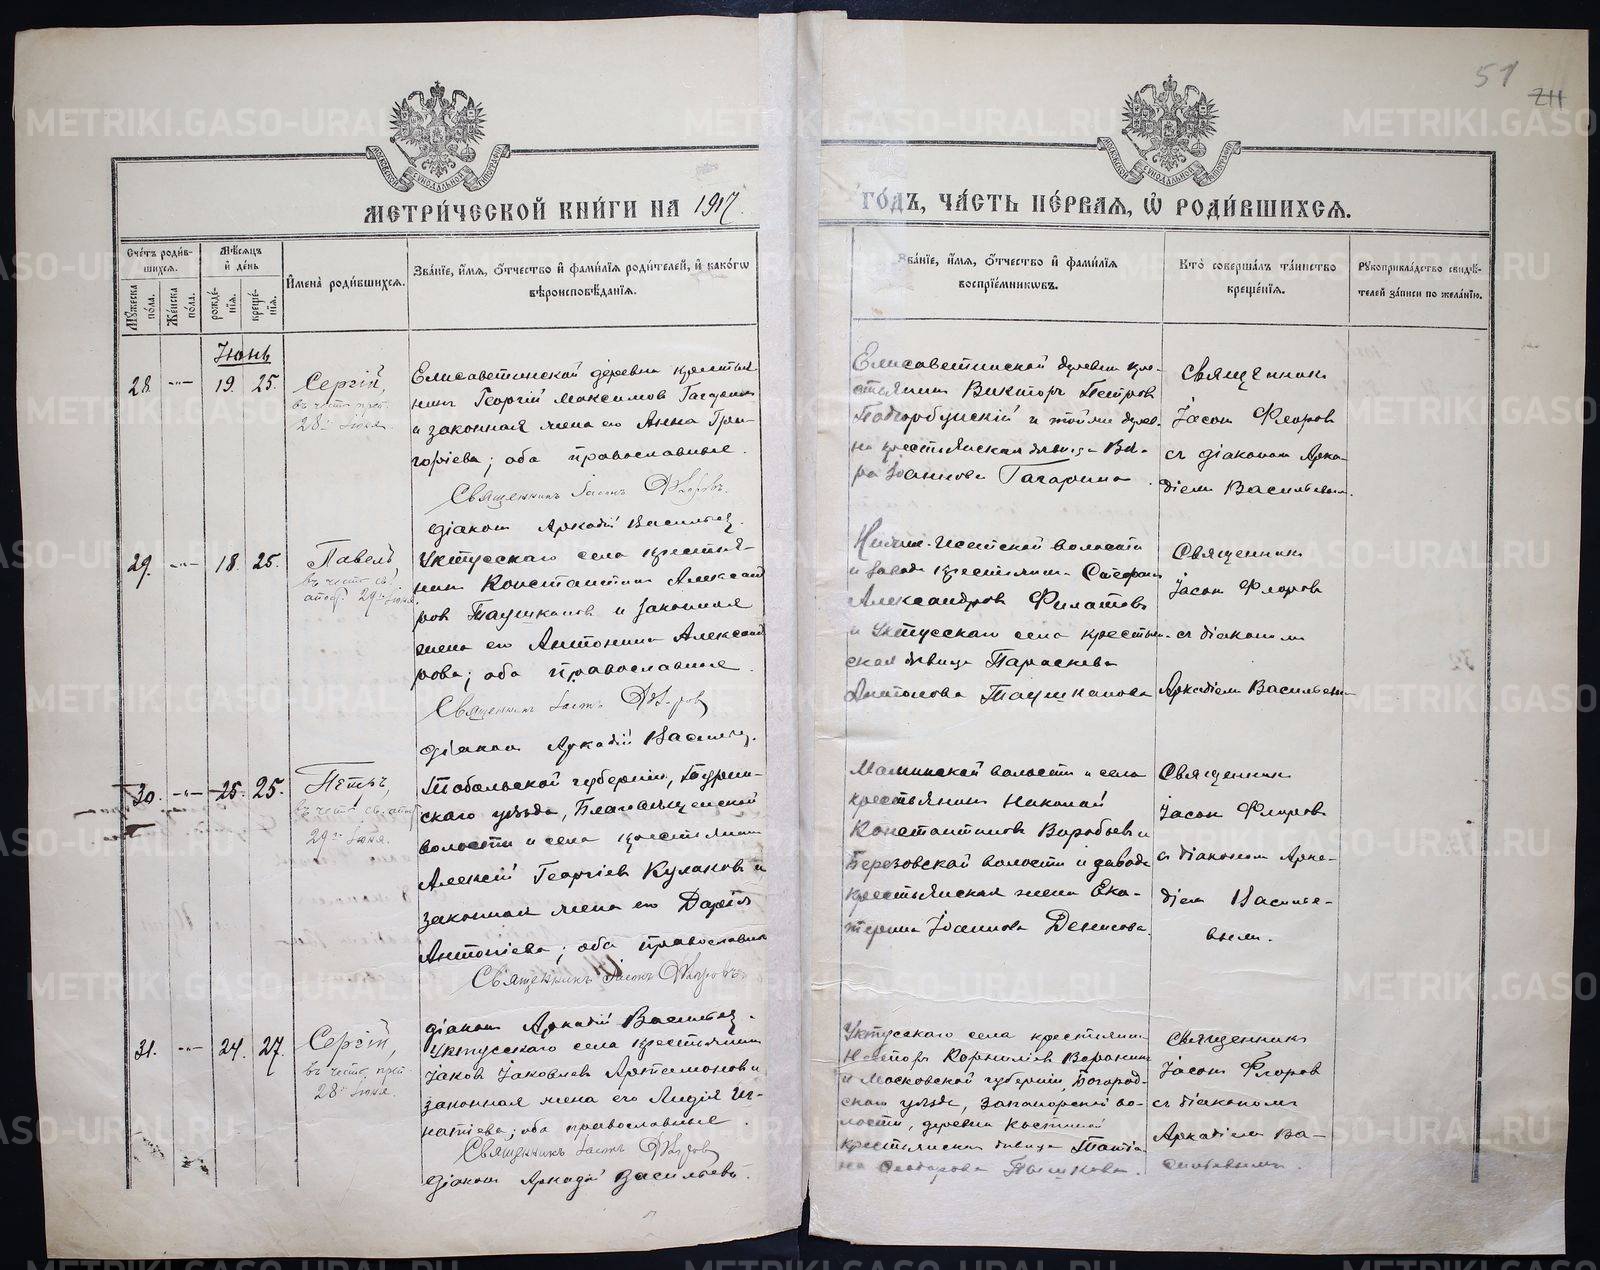 51
211
МЕТРИ́ЧЕСКОЙ КНИ́ГИ НА 1917
ГО́ДЪ, ЧА́СТЬ ПЕ́РВАЯ, Ѡ҆ РОДИ́ВШИХСЯ.
Сче́тъ роди́в-
шихся.
Мѣ́сяцъ
и҆ де́нь
Мꙋ́жеска по́ла.
Же́нска по́ла.
рожде́-
нїя.
креще́-
нїя.
И҆мена̀ роди́вшихся.
Зва́нїе, и҆́мя, ѻ҆́тчество и҆ фами́лїя роди́телей, и҆ како́гѡ
вѣроисповѣ́данїя.
Зва́нїе, и҆́мя, ѻ҆́тчество и҆ фами́лїя
воспрїе́мникѡвъ.
Кто̀ соверша́лъ та́инство
креще́нїя.
Рꙋкоприкла́дство свидѣ́-
телей за́писи по жела́нїю.
Іюнь
28. -"- 19. 25.
Сергій,
въ честь преп.
28го Іюня.
Елисаветинской деревни крестья
нинъ Георгій Максимов Гагарин
и законная жена его Анна Гри-
горіева; оба православные.
Священникъ Іасонъ Флоровъ.
Діакон Аркадій Васильев.
Елисаветинской деревни кре-
стьянин Викторъ Петров
Подгорбунскій и тойже дерев-
ни крестьянская дѣвица Вѣ-
ра Іоаннова Гагарина
Священник
Іасон Флоров
съ діаконом Арка-
діем Васильевым.
29. -"- 18. 25.
Павелъ,
въ честь св.
апост. 29го Іюня.
Уктусскаго села крестья-
нин Константин Александ
ров Таушканов и законная
жена его Антонина Александ
рова; оба православные.
Священникъ Іасонъ Флоров
Діакон Аркадій Васильев.
Нижне-Исетской волости
и завода крестьянин Стефан
Александров Филатов
и Уктусскаго села крестьян-
ская дѣвица Параскева
Антонова Таушканова
Священник
Іасон Флоров
съ діаконом
Аркадіем Васильевым
30. -"- 25. 25.
Петръ,
въ честь св. апос
29го Іюня.
Тобольской губерніи, Турин-
скаго уѣзда, Благовѣщенской
волости и села крестьянин
Алексій Георгіев Кулаков и
законная жена его Дарія
Антоніева; оба православные
Священникъ Іасонъ Флоровъ
Діакон Аркадій Васильев.
Маминской волости и села
крестьянин Николай
Константинов Воробьев и
Березовской волости и завода
крестьянская жена Ека-
терина Іоаннова Денисова.
Священник
Іасон Флоров
съ діаконом Арка-
діем Василье-
вым.
31. -"- 24. 27.
Сергій,
въ честь преп.
28го Іюня.
Уктусскаго села крестьянин
Іаков Іаковлев Артамонов и
законная жена его Лидія Иг-
натіева; оба православные.
Священникъ Іасонъ Флоров
Діакон Аркадій Васильевъ.
Уктусскаго села крестьянин
Нестор Корниліев Воронин
и Московской губерніи, Богород-
скаго уѣзда, Запонорской во-
лости, деревни Костиной
крестьянская дѣвица Татіа
на Ѳеодорова Пышкова.
Священник
Іасон Флоров
съ діаконом
Аркадіем Ва-
сильевым.
METRIKI.GASO-URAL.RU